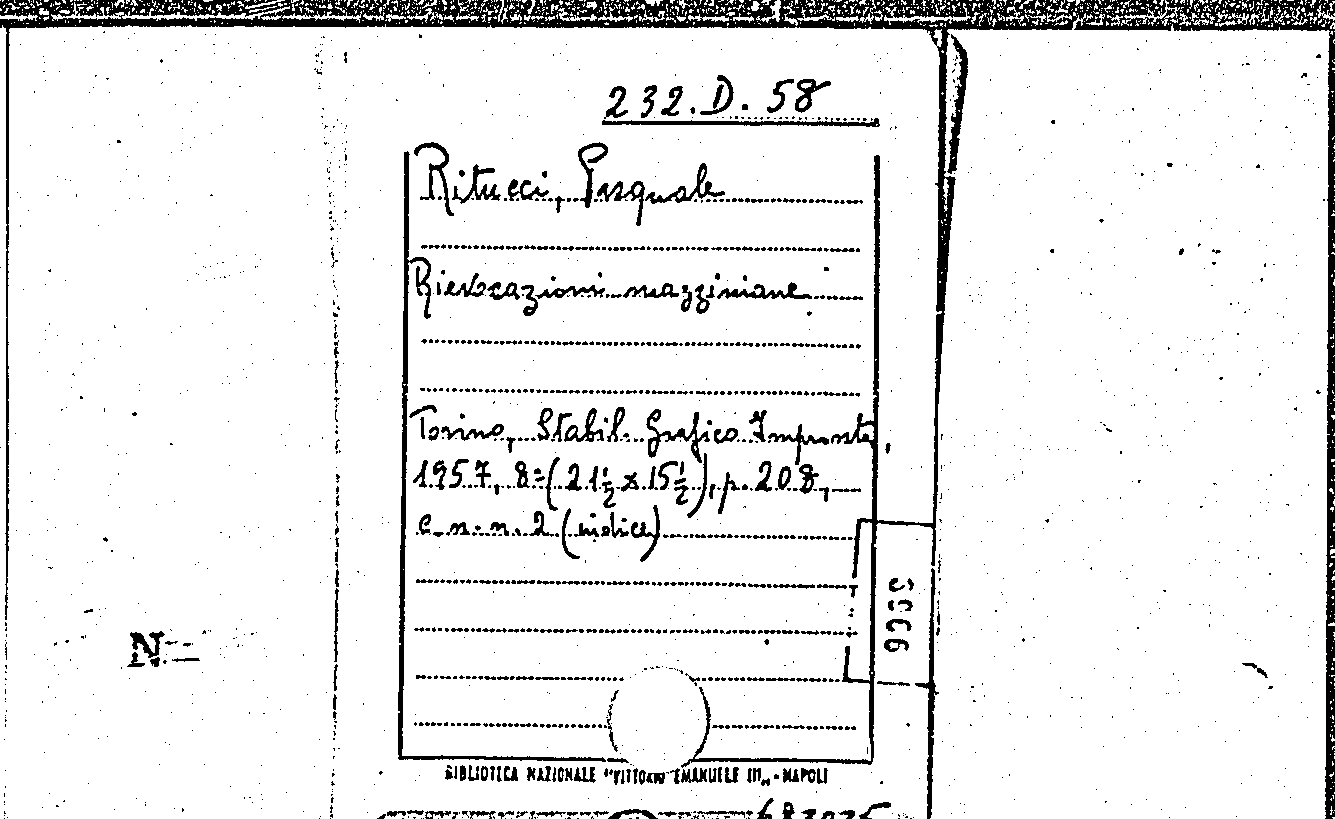 232.D.58
Ritucci, Pasquale
Rievocazioni mazziniane
Torino, Stabil. Grafico Impronta,
1957, 8º (21½ x 15½), p. 208,
c. n. n. 2 (indice)
N
BIBLIOTECA NAZIONALE "VITTORIO EMANUELE III„ - NAPOLI